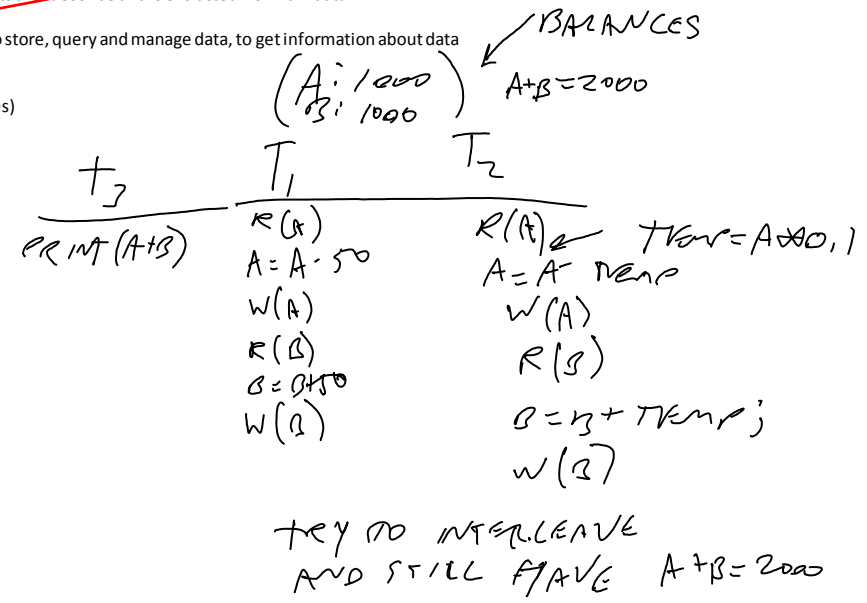 o store, query and manage data, to get information about data
BALANCES
A: 1000
B: 1000
A+B=2000
s)
T3
T1
T2
PRINT (A+B)
R(A)
A = A - 50
W(A)
R(B)
B = B+50
W(B)
R(A) TEMP = A*0,1
A = A - TEMP
W(A)
R(B)
B = B + TEMP;
W(B)
TRY TO INTERLEAVE
AND STILL HAVE A+B=2000